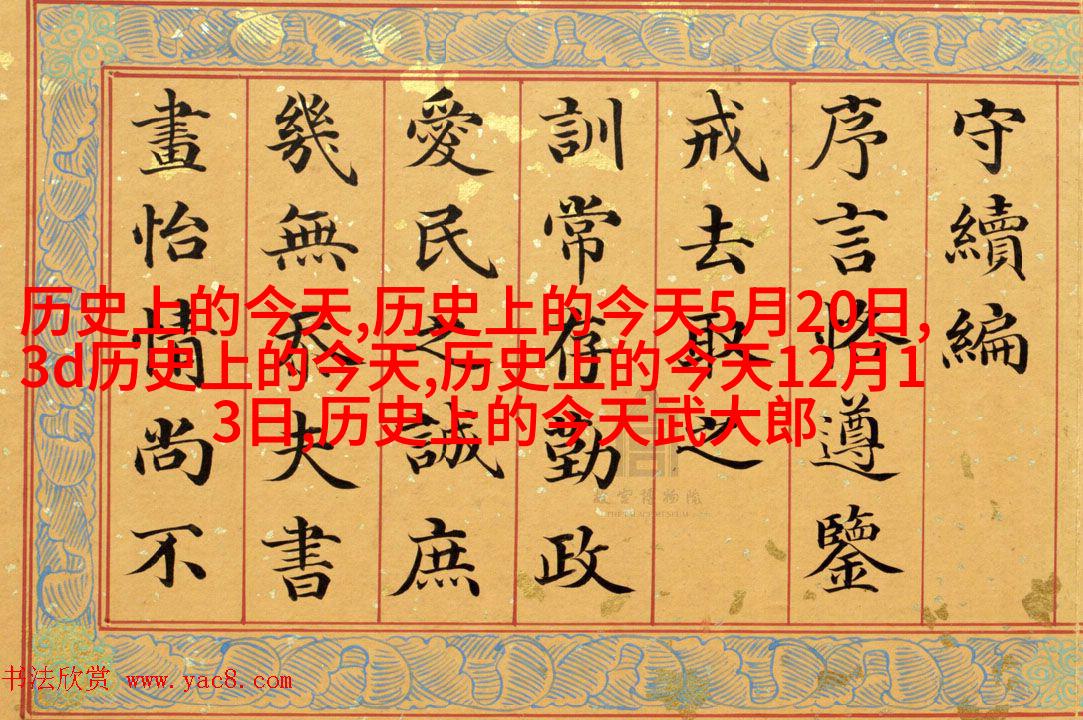 守續編
序言恪遵鑒
戒去敢之
訓常存勤政
愛民之誠庶
幾無忝夫書
畫怡情尚不
历史上的今天,历史上的今天5月20日,
3d历史上的今天,历史上的今天12月1
3日,历史上的今天武大郎
故宮博物院
THE PALACE MUSEUM
书法欣赏 www.yac8.com